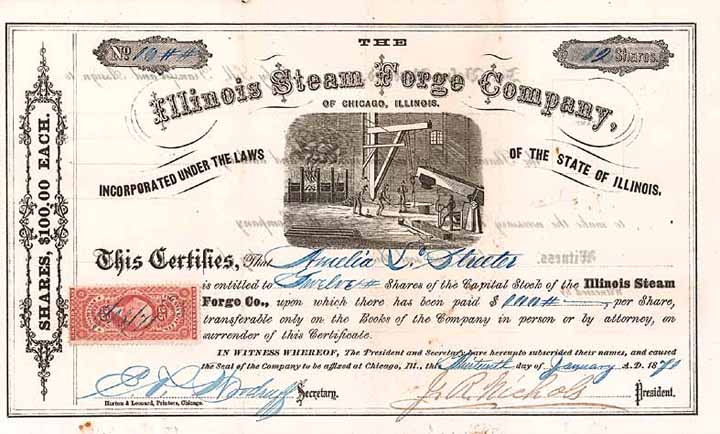 THE
No 10##
12 Shares.
Illinois Steam Forge Company,
OF CHICAGO, ILLINOIS.
INCORPORATED UNDER THE LAWS
OF THE STATE OF ILLINOIS.
SHARES, $100,00 EACH.
This Certifies, That Amelia D. Streeter
is entitled to Twelve Shares of the Capital Stock of the Illinois Steam
Forge Co., upon which there has been paid $ per Share,
transferable only on the Books of the Company in person or by attorney, on
surrender of this Certificate.
IN WITNESS WHEREOF, The President and Secretary have hereunto subscribed their names, and caused
the Seal of the Company to be affixed at Chicago, Ill., this Thirteenth day of January A.D. 1870
E. D. Woodruff Secretary.
J. R. Nichols President.
Horton & Leonard, Printers, Chicago.